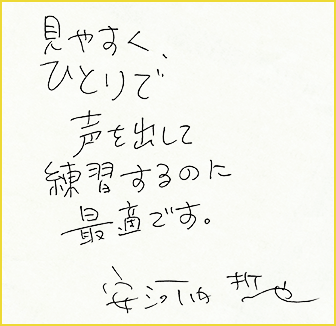 見やすく、
ひとりで
声を出して
練習するのに
最適です。
安河内 哲也